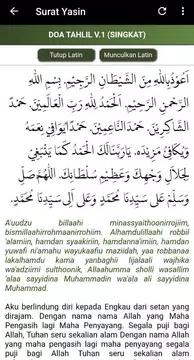 Surat Yasin
DOA TAHLIL V.1 (SINGKAT)
Tutup Latin
Munculkan Latin
اَعُوْذُبِاللهِ مِنَ الشَّيْطَانِ الرَّجِيْمِ. بِسْمِ اللهِ
الرَّحْمٰنِ الرَّحِيْمِ. اَلْحَمْدُ لِلّٰهِ رَبِّ الْعَالَمِيْنَ. حَمْدَ
الشَّاكِرِيْنَ. حَمْدَ النَّاعِمِيْنَ. حَمْدًا يُوَافِيْ نِعَمَهُ
وَيُكَافِئُ مَزِيْدَهُ. يَارَبَّنَا لَكَ الْحَمْدُ كَمَا يَنْبَغِيْ
لِجَلَالِ وَجْهِكَ وَعَظِيْمِ سُلْطَانِكَ. اَللّٰهُمَّ صَلِّ
وَسَلِّمْ عَلَى سَيِّدِنَا مُحَمَّدٍ وَعَلَى آلِ سَيِّدِنَا مُحَمَّدٍ.
A'uudzu billaahi minassyaithoonirrojiim,
bismillaahirrohmaanirrohiim. Alhamdulillaahi robbil
'alamiin, hamdan syaakiriin, hamdanna'imiin, hamdan
yuwafi ni'amahu wayukaafiu maziidah, yaa robbanaa
lakalhamdu kama yanbaghii lijalaali wajhika
wa'adziimi sulthoonik, Allaahumma sholli wasallim
'alaa sayyidina Muhammadin wa'ala ali sayyidina
Muhammad.
Aku berlindung diri kepada Engkau dari setan yang
dirajam. Dengan nama nama Allah yang Maha
Pengasih lagi Maha Penyayang. Segala puji bagi
Allah, Tuhan seru sekalian alam Dengan nama Allah
yang maha pengasih lagi maha penyayang. Segala
puji bagi Allah Tuhan seru sekalian alam,